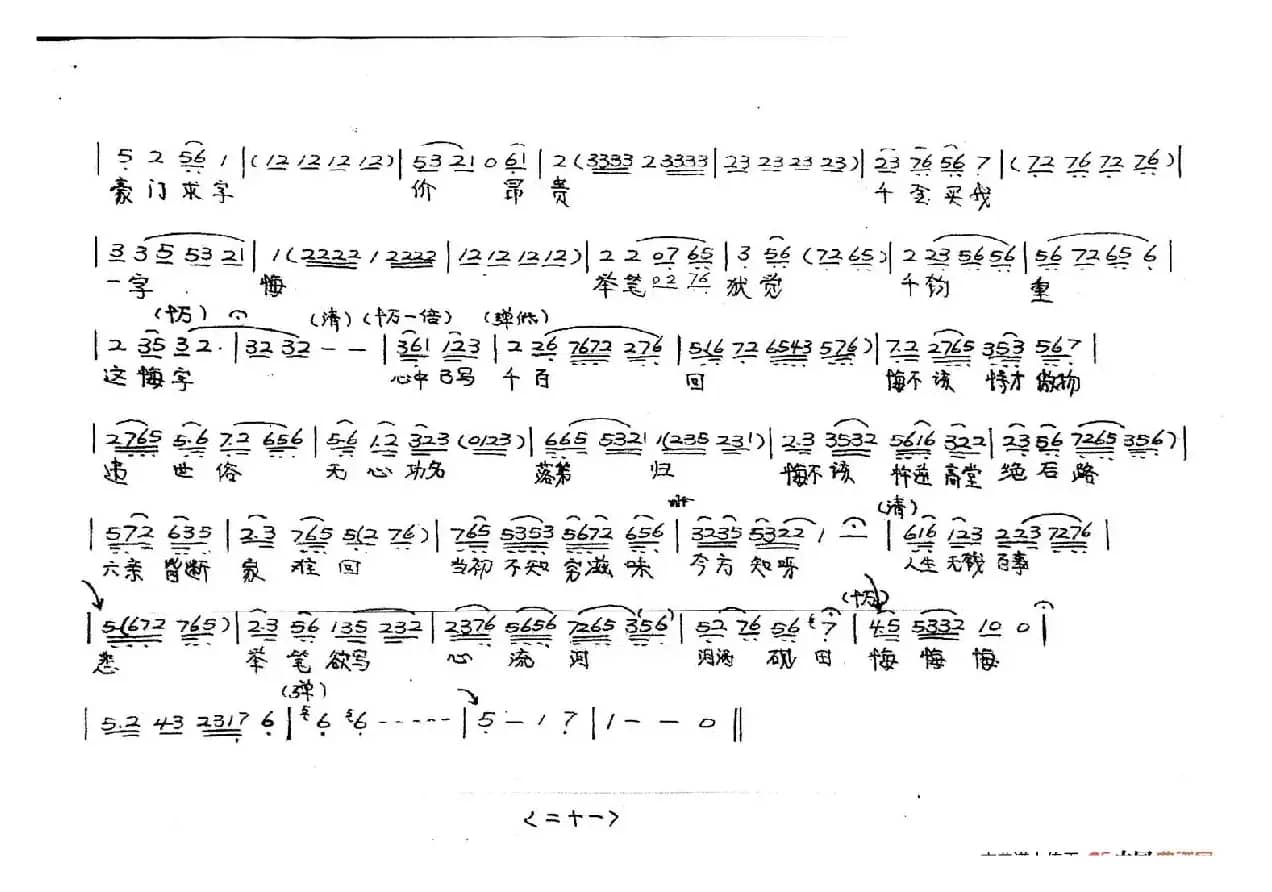 | 5 2 56 1 | (12 12 12 12) | 53 21 0 61 | 2 (3333 2 3333 | 23 23 23 23) | 23 76 56 7 | (72 76 72 76) |
豪门求字 价 昂 贵 千金买我
| 3 3 5 53 21 | 1 (2222 1 2222 | 12 12 12 12) | 2 2 07 65 | 3 56 (72 65) | 2 23 56 56 | 56 72 65 6 |
一字 悔 举笔 02 76 犹觉 千钧 重
(清) (弹低)
| 2 35 3 2· | 32 32 - - | 361 123 | 2 26 7672 276 | 5(6 72 6543 576) | 7·2 2765 353 567 |
这悔字 心中 写 千百 回 悔不该 恃才傲物
| 2765 5·6 7·2 656 | 5·6 1·2 323 (0123) | 665 5321 1(235 231) | 2·3 3532 5616 322 | 23 56 7265 356) |
违 世 俗 无心功名 落第 归 悔不该 忤逆高堂 绝后路
(清)
| 572 635 | 2·3 765 5(2 76) | 765 5353 5672 656 | 3235 5322 1 - | 616 123 223 7276 |
六亲皆断 家 难 回 当初 不知 穷滋 味 今方 知呀 人生 无钱 百事
| 5(672 765) | 2·3 56 135 232 | 2376 5656 7265 356) | 52 76 56 7 | 45 5332 10 0 |
悲 举 笔 欲写 心 流 泪 砚 田 悔 悔 悔
(弹)
| 5·2 43 2317 6 | 6 6 - - - - - | 5 - 1 7 | 1 - - 0 ||
<二十一>